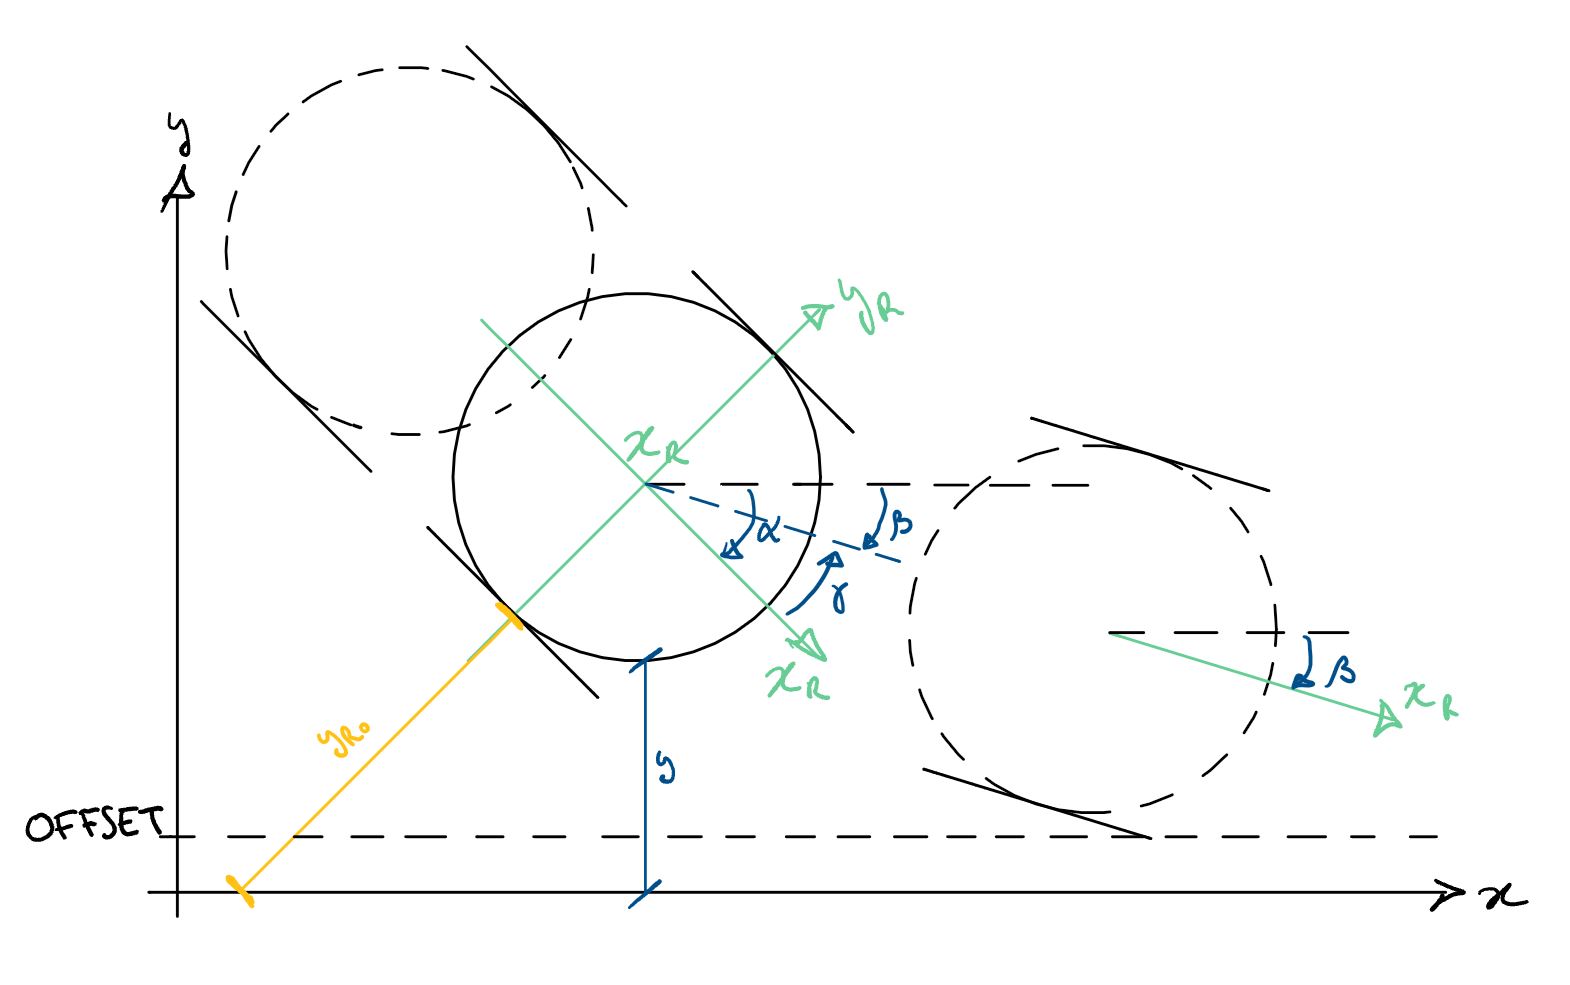 y
y_R
x_R
α
β
γ
x_R
β
x_R
y_R0
y
OFFSET
x